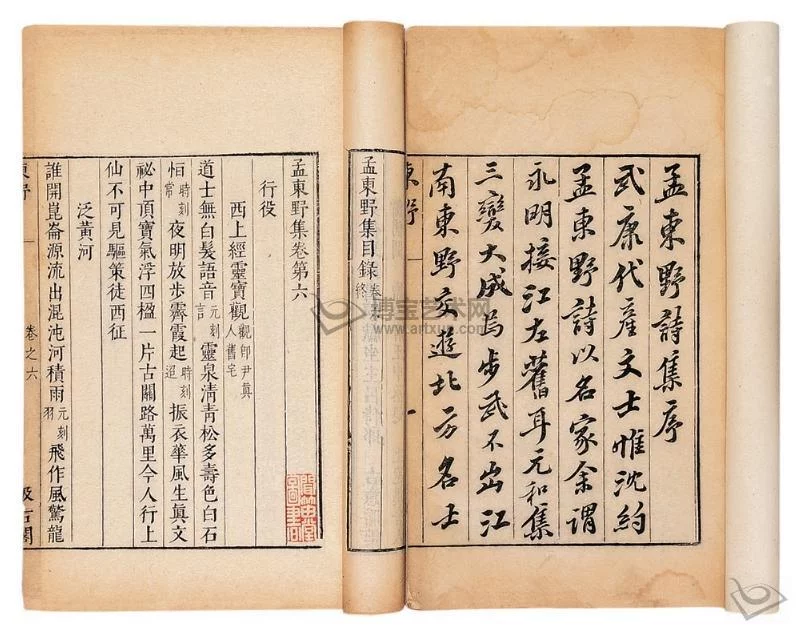 孟東野詩集序
武康代產文士惟沈約
孟東野詩以名家余謂
永明接江左舊耳元和集
三變大成烏步武不出江
南東野交遊北方名士
孟東野集目錄
卷終
孟東野集卷第六
行役
西上經靈寶觀觀卽尹眞人舊宅
道士無白髮語音元刻言靈泉淸靑松多壽色白石
恒時刻常夜明放步霽霞起時刻迢振衣華風生眞文
祕中頂寶氣浮四楹一片古關路萬里今人行上
仙不可見驅策徒西征
泛黃河
誰開崑崙源流出混沌河積雨元刻羽飛作風驚龍
東野
卷之六
汲古閣
博宝艺术网
www.artxun.com